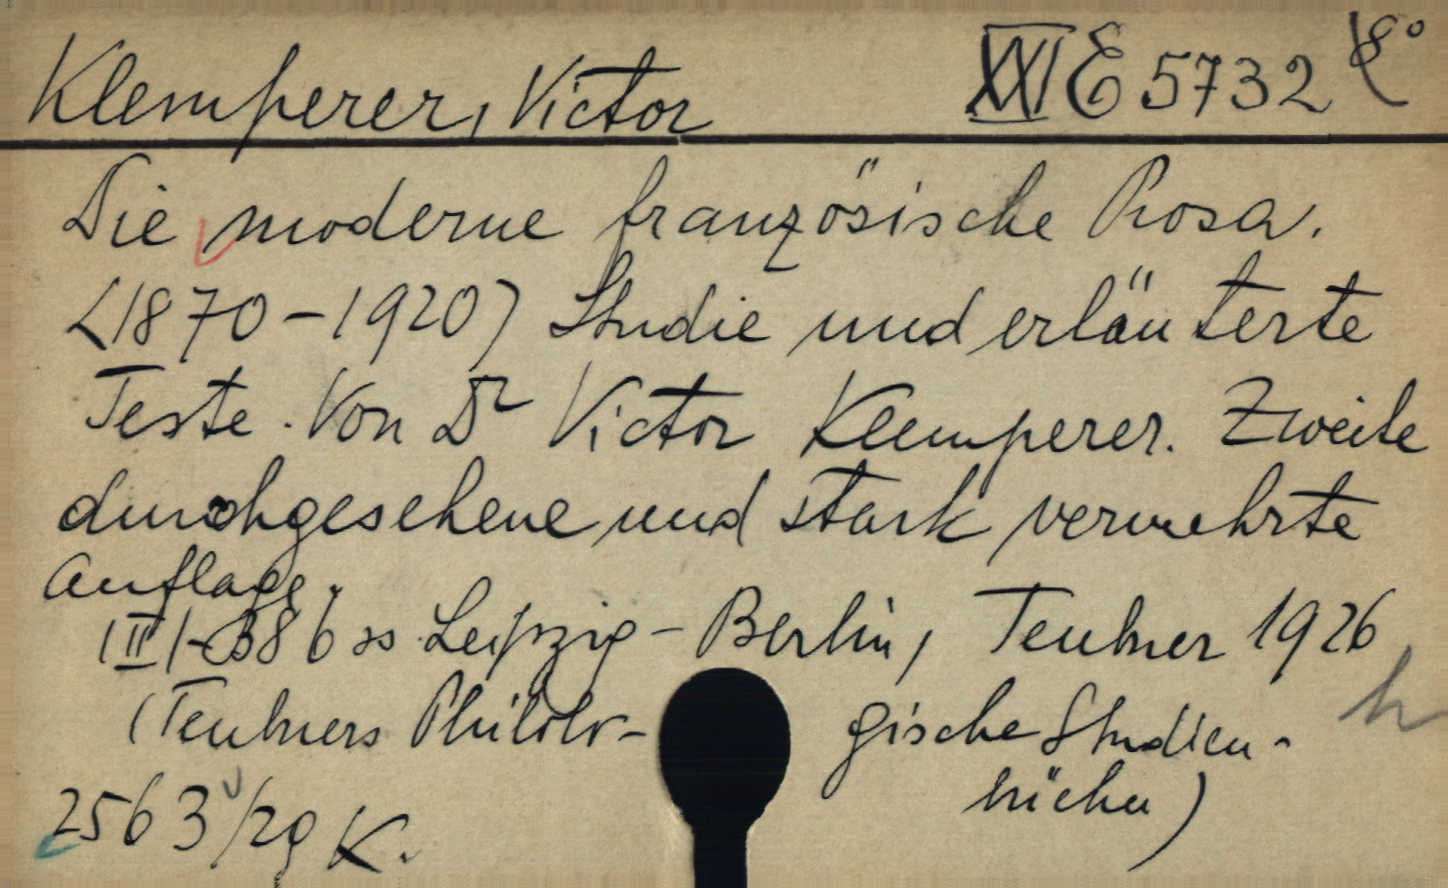 Klemperer, Victor XXI E 5732 8°
Die moderne französische Prosa.
(1870-1920) Studie und erläuterte
Texte. Von Dr Victor Klemperer. Zweite
durchgesehene und stark vermehrte
Auflage.
III-386 ss Leipzig-Berlin, Teubner 1926
(Teubners Philolo-gische Studien-
bücher)
2563/29 K.
h